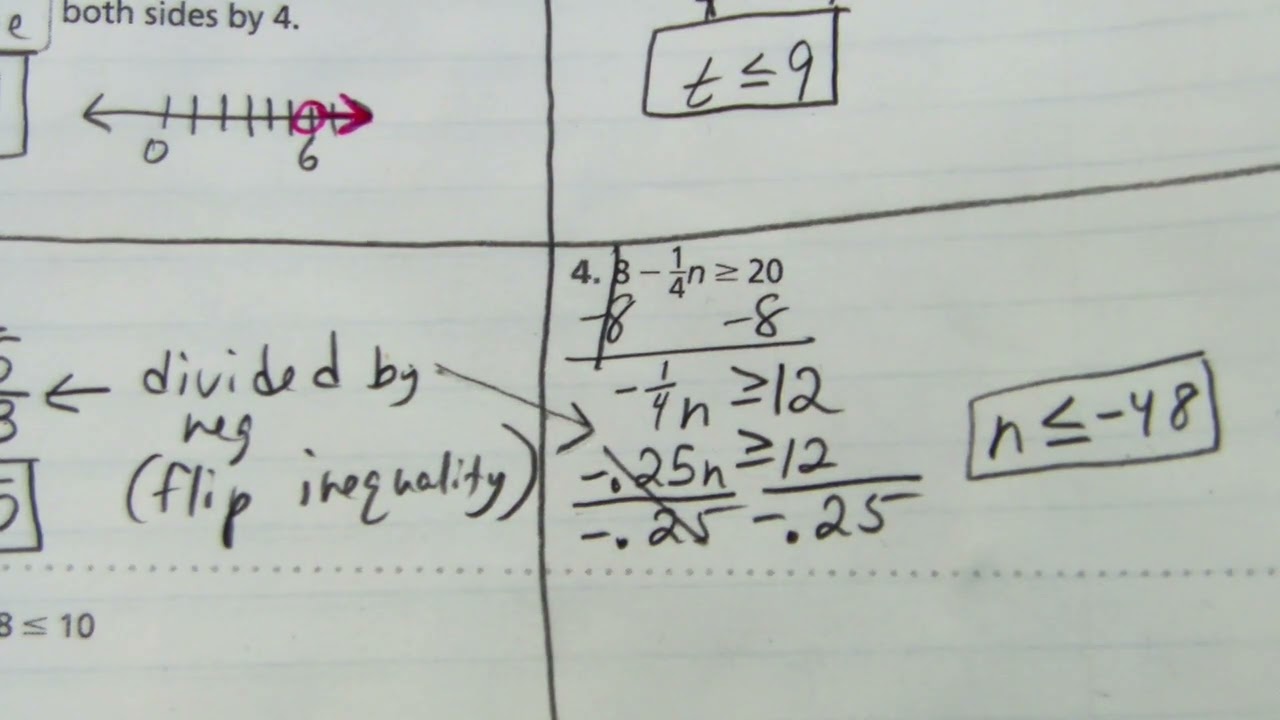 e
both sides by 4.
0 6
t ≤ 9
4. 8 − 1/4 n ≥ 20
−8 −8
−1/4 n ≥ 12
−.25n ≥ 12
−.25 −.25
n ≤ −48
← divided by
neg
(flip inequality)
8 ≤ 10